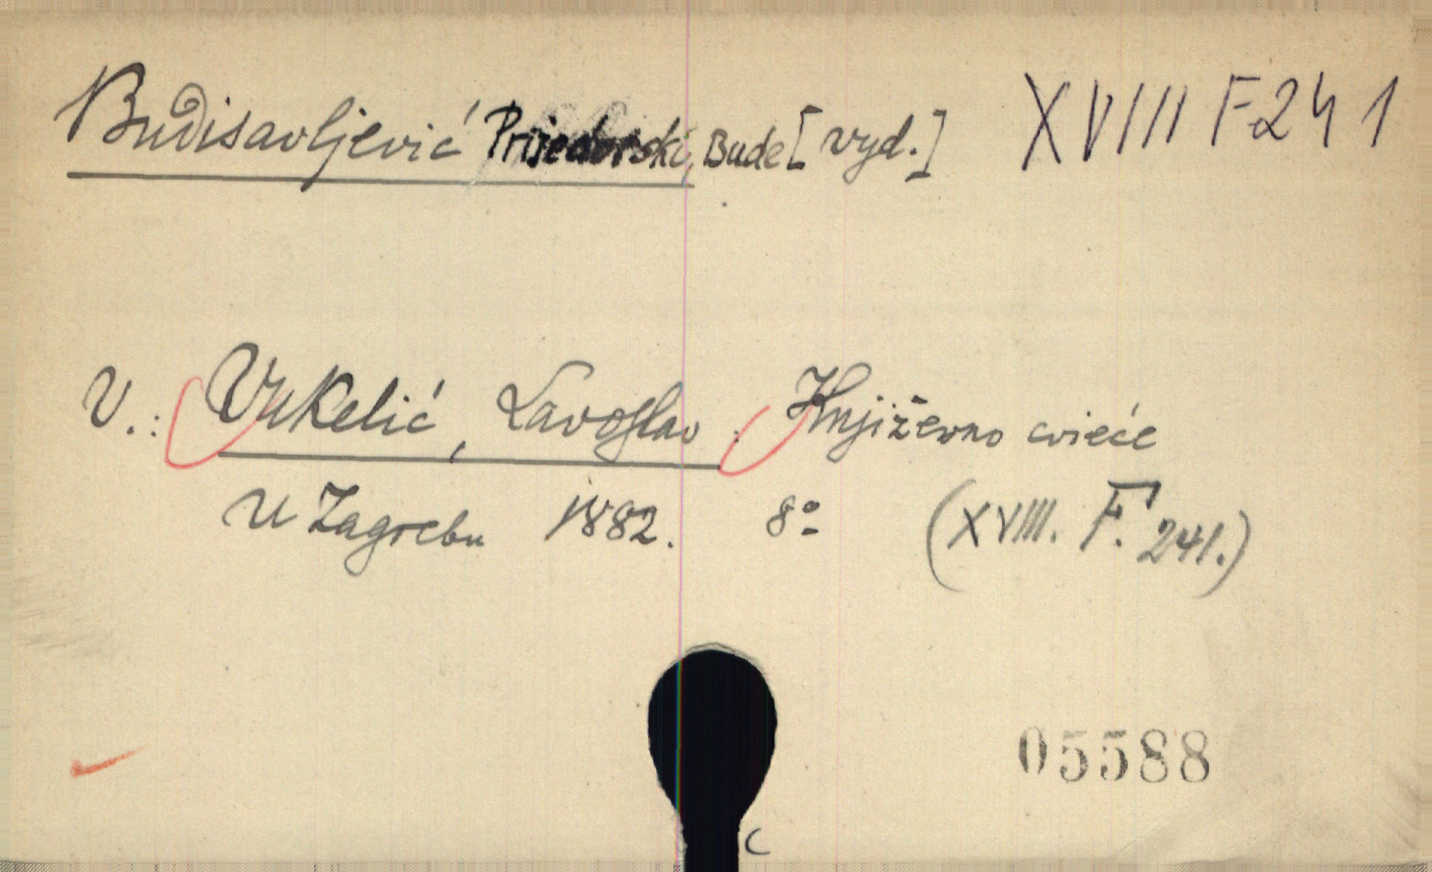 Budisavljević Prijedorski, Bude [vyd.] XVIII F 241
V.: Vukelić, Lavoslav: Književno cvieće
U Zagrebu 1882. 8° (XVIII. F. 241.)
05588
C